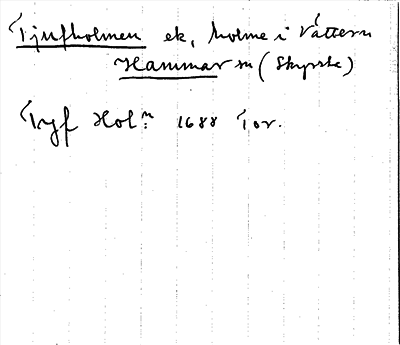 Tjufholmen ek, holme i Vättern
Hammar sn (Skyrste)
Tyf Holn: 1688 Tor.